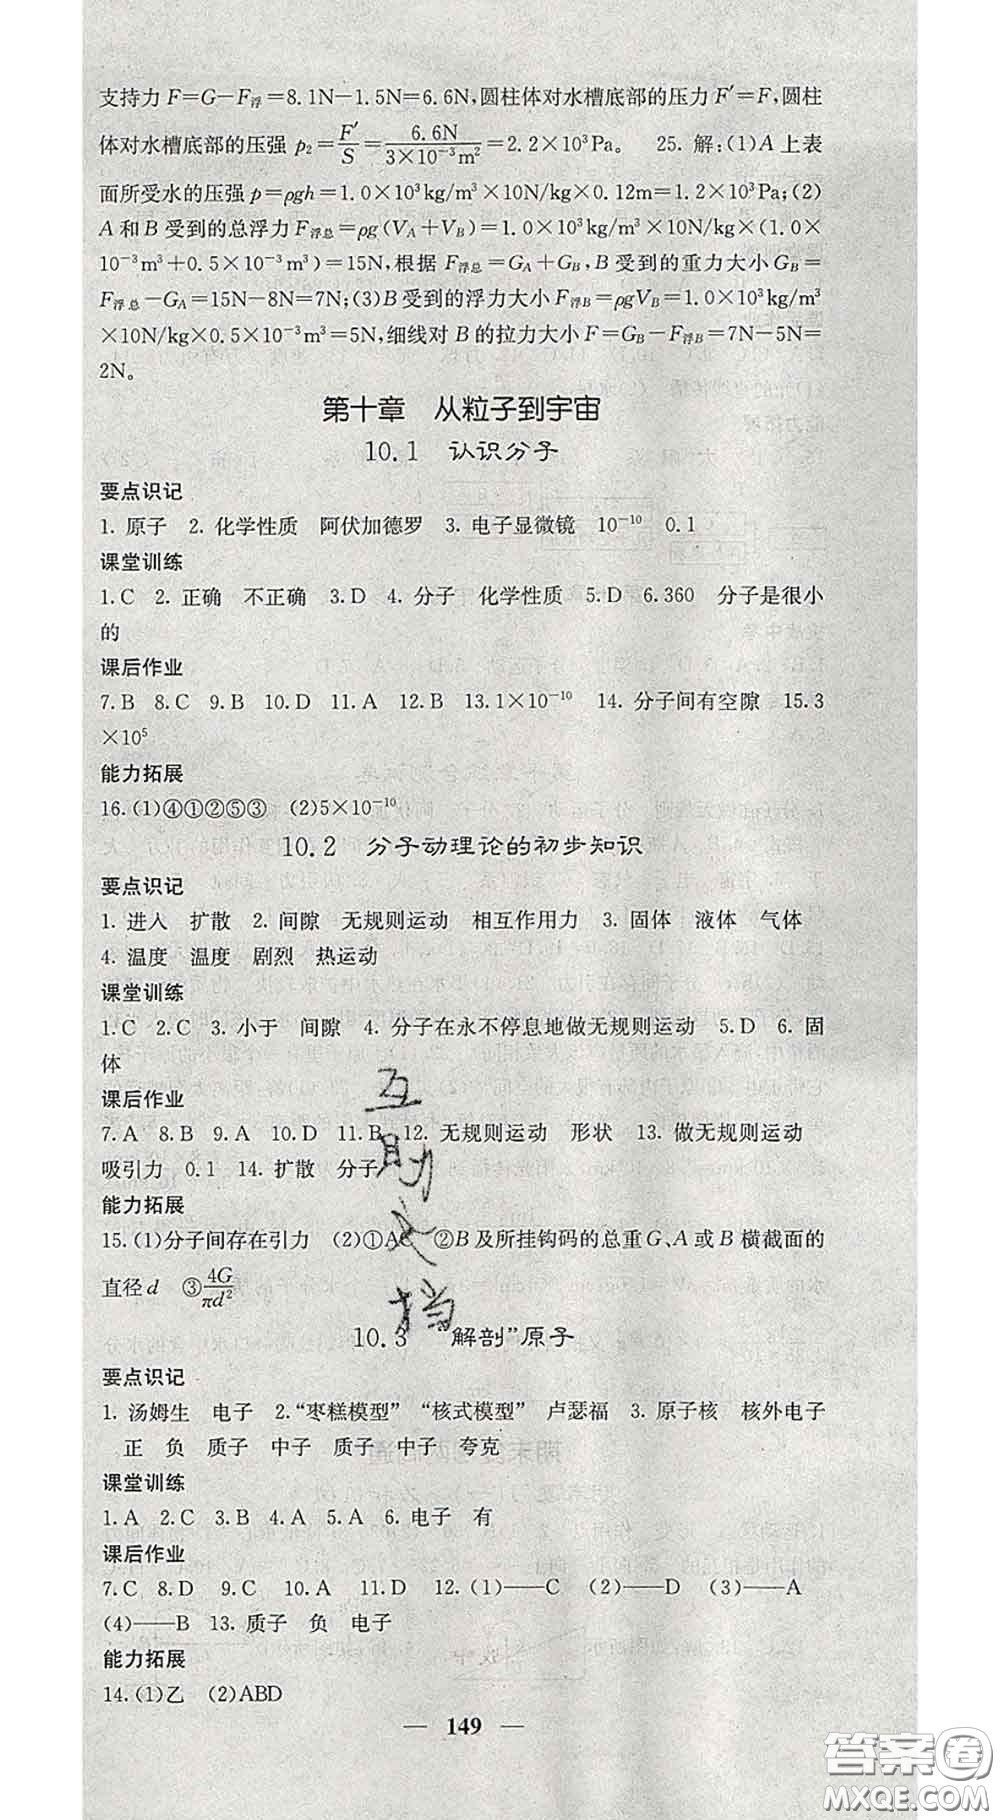 支持力 F=G−F浮=8.1N−1.5N=6.6N,圆柱体对水槽底部的压力 F′=F,圆柱
体对水槽底部的压强 p₂=F′/S=6.6N/3×10⁻³m²=2.2×10³Pa。 25. 解:(1)A 上表
面所受水的压强 p=ρgh=1.0×10³kg/m³×10N/kg×0.12m=1.2×10³Pa;(2)
A 和 B 受到的总浮力 F浮总=ρg(V_A+V_B)=1.0×10³kg/m³×10N/kg×(1.0×
10⁻³m³+0.5×10⁻³m³)=15N,根据 F浮总=G_A+G_B,B 受到的重力大小 G_B=
F浮总−G_A=15N−8N=7N;(3)B 受到的浮力大小 F浮B=ρgV_B=1.0×10³kg/m³
×10N/kg×0.5×10⁻³m³=5N,细线对 B 的拉力大小 F=G_B−F浮B=7N−5N=
2N。
第十章 从粒子到宇宙
10.1 认识分子
要点识记
1. 原子 2. 化学性质 阿伏加德罗 3. 电子显微镜 10⁻¹⁰ 0.1
课堂训练
1.C 2. 正确 不正确 3.D 4. 分子 化学性质 5.D 6.360 分子是很小
的
课后作业
7.B 8.C 9.B 10.D 11.A 12.B 13.1×10⁻¹⁰ 14. 分子间有空隙 15.3
×10⁵
能力拓展
16.(1)④①②⑤③ (2)5×10⁻¹⁰
10.2 分子动理论的初步知识
要点识记
1. 进入 扩散 2. 间隙 无规则运动 相互作用力 3. 固体 液体 气体
4. 温度 温度 剧烈 热运动
课堂训练
1.C 2.C 3. 小于 间隙 4. 分子在永不停息地做无规则运动 5.D 6. 固
体
课后作业
7.A 8.B 9.A 10.D 11.B 12. 无规则运动 形状 13. 做无规则运动
吸引力 0.1 14. 扩散 分子
能力拓展
15.(1)分子间存在引力 (2)①AC ②B 及所挂钩码的总重 G、A 或 B 横截面的
直径 d ③4G/πd²
10.3 “解剖”原子
要点识记
1. 汤姆生 电子 2.“枣糕模型” “核式模型” 卢瑟福 3. 原子核 核外电子
正 负 质子 中子 质子 中子 夸克
课堂训练
1.A 2.C 3.B 4.A 5.A 6. 电子 有
课后作业
7.C 8.D 9.C 10.A 11.D 12.(1)——C (2)——D (3)——A
(4)——B 13. 质子 负 电子
能力拓展
14.(1)乙 (2)ABD
— 149 —
互
助
文
档
答案圈
MXQE.COM